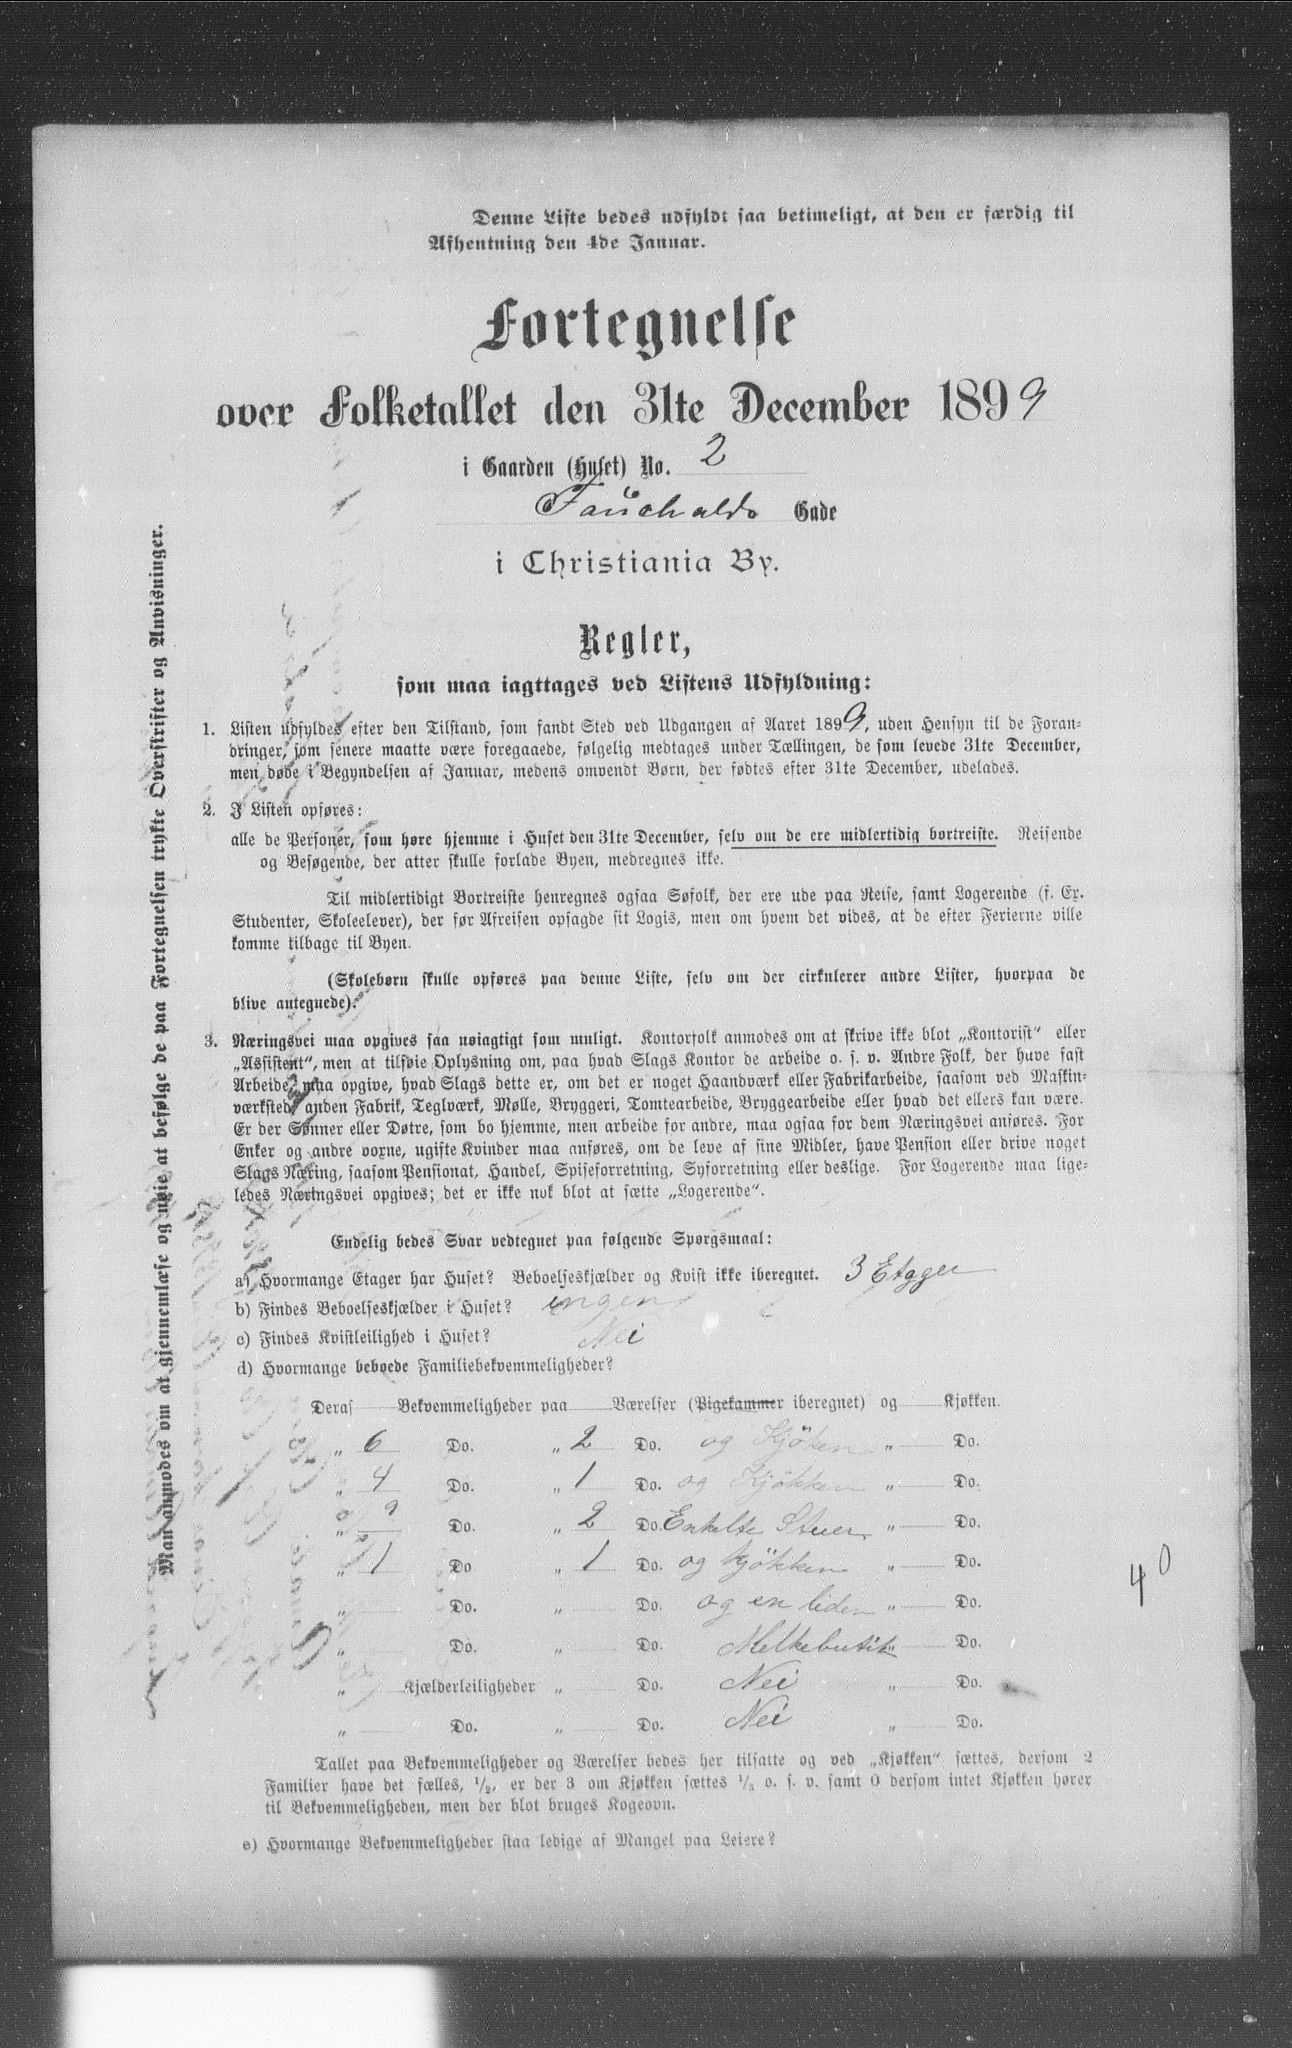 Denne Liste bedes udfyldt saa betimeligt, at den er færdig til
Afhentning den 4de Januar.
Fortegnelse
over Folketallet den 31te December 1899
i Gaarden (Huset) No. 2
Fauchalds Gade
i Christiania By.
Regler,
som maa iagttages ved Listens Udfyldning:
1. Listen udfyldes efter den Tilstand, som fandt Sted ved Udgangen af Aaret 1899, uden Hensyn til de Foran-
dringer, som senere maatte være foregaaede, følgelig medtages under Tællingen, de som levede 31te December,
men døde i Begyndelsen af Januar, medens omvendt Børn, der fødtes efter 31te December, udelades.
2. I Listen opføres:
alle de Personer, som høre hjemme i Huset den 31te December, selv om de ere midlertidig bortreiste. Reisende
og Besøgende, der atter skulle forlade Byen, medregnes ikke.
Til midlertidigt Bortreiste henregnes ogsaa Søfolk, der ere ude paa Reise, samt Logerende (f. Ex.
Studenter, Skoleelever), der før Afreisen opsagde sit Logis, men om hvem det vides, at de efter Ferierne ville
komme tilbage til Byen.
(Skolebørn skulle opføres paa denne Liste, selv om der cirkulerer andre Lister, hvorpaa de
blive antegnede).
3. Næringsvei maa opgives saa nøiagtigt som muligt. Kontorfolk anmodes om at skrive ikke blot „Kontorist“ eller
„Assistent“, men at tilføie Oplysning om, paa hvad Slags Kontor de arbeide o. s. v. Andre Folk, der have fast
Arbeide, maa opgive, hvad Slags dette er, om det er noget Haandværk eller Fabrikarbeide, saasom ved Maskin-
værksted, anden Fabrik, Teglværk, Mølle, Bryggeri, Tomtearbeide, Bryggearbeide eller hvad det ellers kan være.
Er der Sønner eller Døtre, som bo hjemme, men arbeide for andre, maa ogsaa for dem Næringsvei anføres. For
Enker og andre voxne, ugifte Kvinder maa anføres, om de leve af sine Midler, have Pension eller drive noget
Slags Næring, saasom Pensionat, Handel, Spiseforretning, Syforretning eller deslige. For Logerende maa lige-
ledes Næringsvei opgives; det er ikke nok blot at sætte „Logerende“.
Endelig bedes Svar vedtegnet paa følgende Spørgsmaal:
a) Hvormange Etager har Huset? Beboelseskjælder og Kvist ikke iberegnet. 3 Etager
b) Findes Beboelseskjælder i Huset? ingen
c) Findes Kvistleilighed i Huset? Nei
d) Hvormange beboede Familiebekvemmeligheder?
Deraf Bekvemmeligheder paa Værelser (Pigekammer iberegnet) og Kjøkken.
„ 6 Do. „ 2 Do. og Kjöken „ Do.
„ 4 Do. „ 1 Do. og Kjökken „ Do.
„ 2 Do. „ 2 Do. Enkelte Stuer „ Do.
„ 1 Do „ 1 Do. og kjökken „ Do.
„ Do. „ Do. og en liden „ Do.
„ Do. „ Do. Melkebutik „ Do.
„ Kjælderleiligheder „ Do. Nei „ Do.
„ Do. „ Do. Nei „ Do.
40
Tallet paa Bekvemmeligheder og Værelser bedes her tilsatte og ved „Kjøkken“ sættes, dersom 2
Familier have det fælles, 1/2, er der 3 om Kjøkken sættes 1/3 o. s. v. samt 0 dersom intet Kjøkken hører
til Bekvemmeligheden, men der blot bruges Kogeovn.
e) Hvormange Bekvemmeligheder staa ledige af Mangel paa Leiere?
Man anmodes om at gjennemlæse og nøie at befølge de paa Fortegnelsen trykte Overskrifter og Anvisninger.